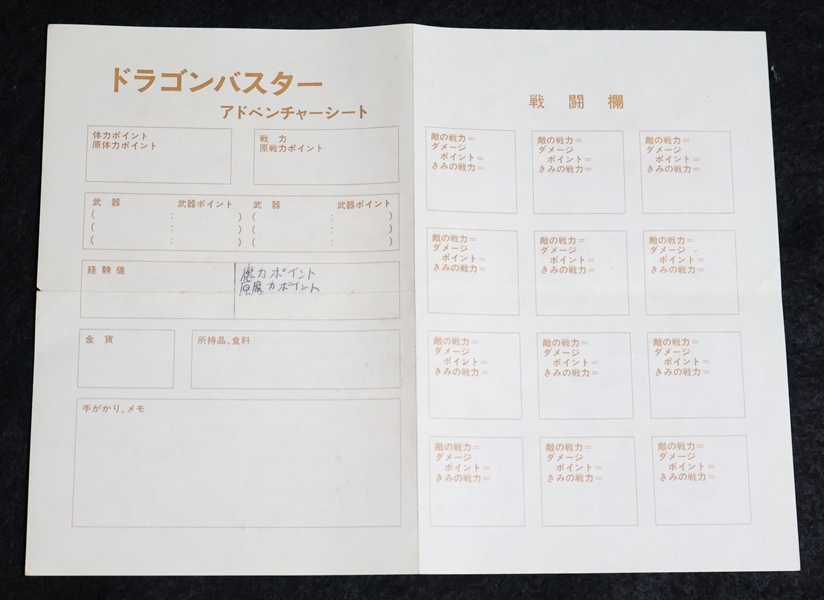 ドラゴンバスター
アドベンチャーシート
体力ポイント
原体力ポイント
戦　力
原戦力ポイント
武　器　武器ポイント　武　器　武器ポイント
(　：　)　(　：　)
(　：　)　(　：　)
(　：　)　(　：　)
経験値
魔力ポイント
原魔力ポイント
金　貨
所持品、食料
手がかり、メモ
戦　闘　欄
敵の戦力＝
ダメージ
ポイント＝
きみの戦力＝
敵の戦力＝
ダメージ
ポイント＝
きみの戦力＝
敵の戦力＝
ダメージ
ポイント＝
きみの戦力＝
敵の戦力＝
ダメージ
ポイント＝
きみの戦力＝
敵の戦力＝
ダメージ
ポイント＝
きみの戦力＝
敵の戦力＝
ダメージ
ポイント＝
きみの戦力＝
敵の戦力＝
ダメージ
ポイント＝
きみの戦力＝
敵の戦力＝
ダメージ
ポイント＝
きみの戦力＝
敵の戦力＝
ダメージ
ポイント＝
きみの戦力＝
敵の戦力＝
ダメージ
ポイント＝
きみの戦力＝
敵の戦力＝
ダメージ
ポイント＝
きみの戦力＝
敵の戦力＝
ダメージ
ポイント＝
きみの戦力＝